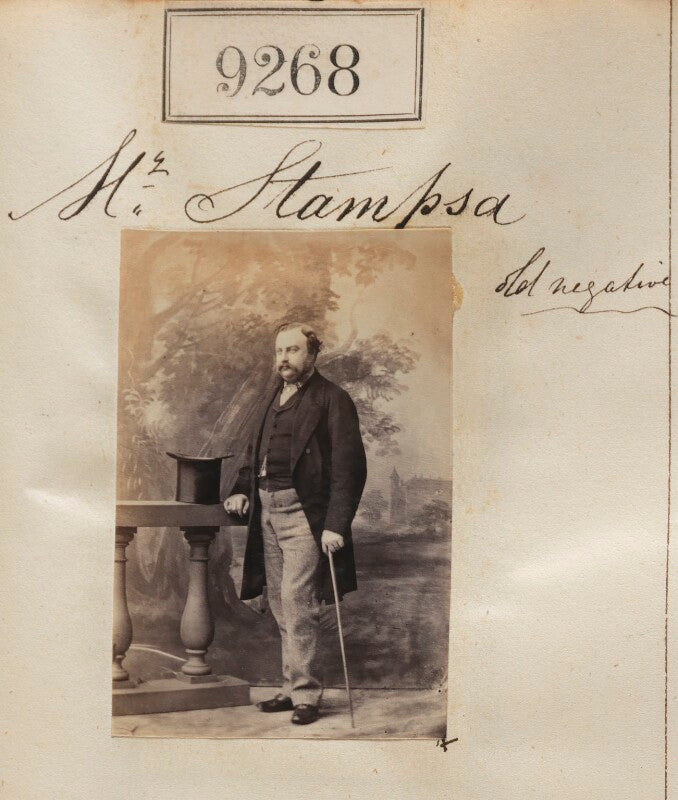 9268
Mr. Stampsa
old negative